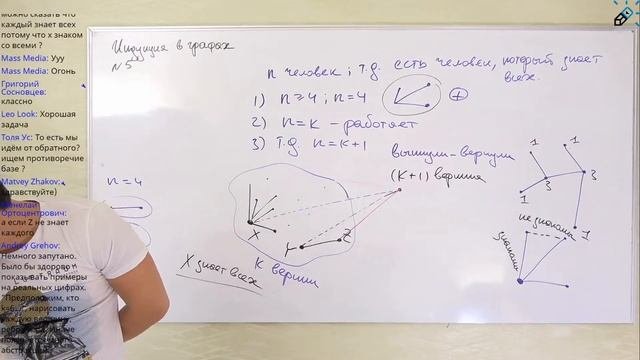 можно сказать что
каждый знает всех
потому что x знаком
со всеми ?
Mass Media: Ууу
Mass Media: Огонь
Григорий
Сосновцев:
классно
Leo Look: Хорошая
задача
Толя Ус: То есть мы
идём от обратного?
ищем противоречие
базе ?
Matvey Zhakov:
здравствуйте)
Менелай
Ортоцентрович:
а если Z не знает
каждого
Andrey Grehov:
Немного запутано.
Было бы здорово
показывать примеры
на реальных цифрах.
"Предположим, кто
нарисовать
каждую
Индукция в графах
№5
n человек ; т.д. есть человек, который знает
всех.
1) n≥4 ; n=4
2) n=k - работает
3) т.д n=k+1
вынули-вернули
(k+1) вершина
n=4
X
Y
Z
k вершин
X знает всех
1
1
1
3
3
1
не знакомы
знакомы